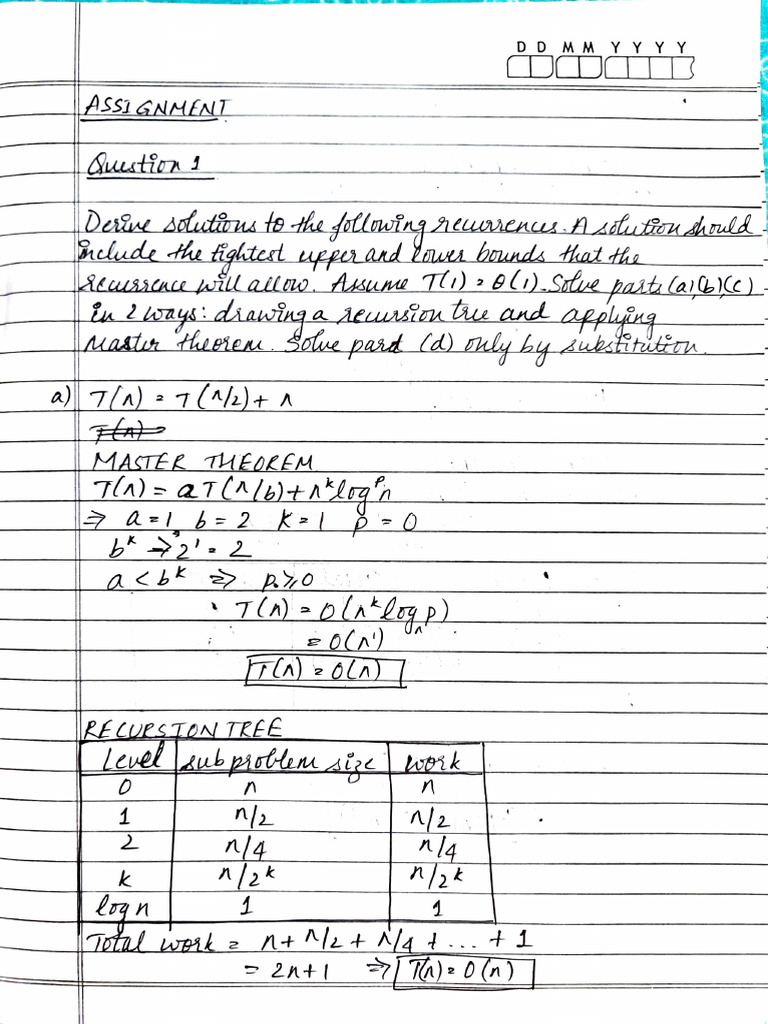 D D M M Y Y Y Y
ASSIGNMENT
Question 1
Derive solutions to the following recurrences. A solution should
include the tightest upper and lower bounds that the
recurrence will allow. Assume T(1) = θ(1). Solve parts (a)(b)(c)
in 2 ways: drawing a recursion tree and applying
Master theorem. Solve part (d) only by substitution.
a) T(n) = T(n/2) + n
T(n) =
MASTER THEOREM
T(n) = aT(n/b) + n^k log^p n
⇒ a = 1, b = 2 k = 1 p = 0
b^k → 2^1 = 2
a < b^k ⇒ p ≥ 0
T(n) = O(n^k log_n p)
= O(n^1)
T(n) = O(n)
RECURSION TREE
Level sub problem size work
0 n n
1 n/2 n/2
2 n/4 n/4
k n/2^k n/2^k
log n 1 1
Total work = n + n/2 + n/4 + ... + 1
= 2n+1 ⇒ T(n) = O(n)